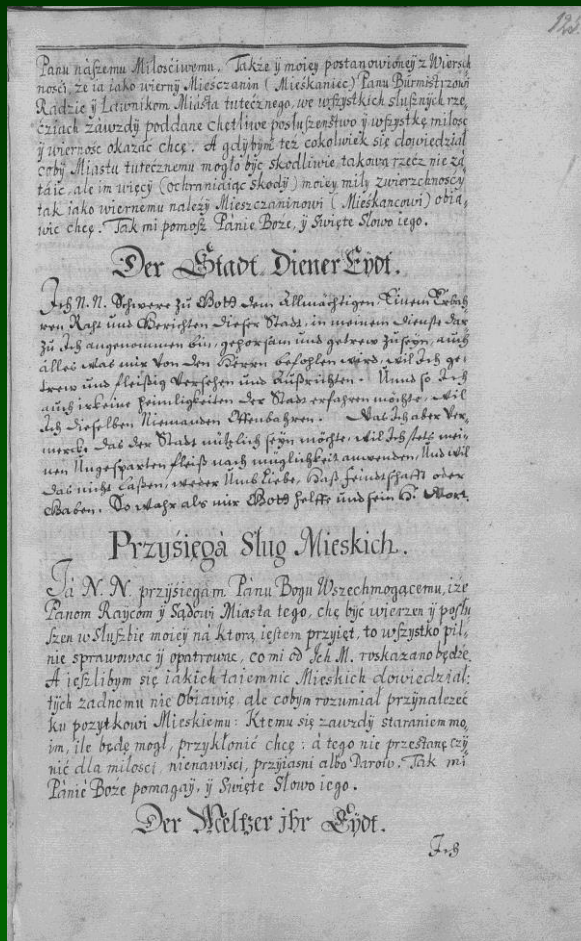 125.
Panu nászemu Milosciwemu. Takze ÿ moieÿ postanowióneÿ z Wierzch
ności, że ia iako wiernÿ Miesczanin (Mieśkaniec) Panu Burmistrzowi
Radzie ÿ Ławnikom Miásta tutecznego, we wszÿstkich słusznÿch rze,
cziach záwzdÿ poddane chętliwe posłuszeństwo ÿ wszÿstkę miłość
ÿ wierność okazác chcę. A gdÿbÿm też cokolwiek się dowiedział
cobÿ Miastu tutecznemu mogło bÿc skodliwie takową rzecz nie zá,
táić, ale im więcÿ (ochraniáiąc skodÿ) moieÿ miłÿ zwierzchnosćÿ
ták jako wiernemu należÿ Mieszczaninowi (Mieśkancowi) obia,
wic chcę. Tak mi pomosz Pánie Boże, ÿ Swięte Słowo iego.
Der Stadt Diener Eÿdt.
Ich N. N. Schwere zu Gott dem Allmächtigen Einem Erbah
ren Raht und Gerichten dieser Stadt, in meinem Dienste dar
zu Ich angenommen bin, gehorsam und getrew zu seÿn, auch
alles was mir von den Herren befohlen wird, wil Ich ge,
trew und fleißig versehen und Außrichten. Unnd so Ich
auch irkeine heimligkeiten der Stadt erfahren möchte, wil
Ich dieselben Niemanden Offenbahren. Was Ich aber ver,
mercke das der Stadt nützlich seÿn möchte, wil Ich stets mei,
nen Ungesparten fleiß nach mügligkeit anwenden, Und wil
das nicht laßen, weder umb Liebe, Haß feindtschafft oder
Gaben. So wahr als mir Gott helffe und sein H. Wort.
Przÿsięgá Sług Mieskich.
Já N. N. przÿsięgám Pánu Bogu Wszechmogącemu, iże
Pánom Raÿcom ÿ Sądowi Miasta tego, chę bÿc wierzen ÿ posłu
szen w słuszbie moieÿ ná ktorą iestem przÿięt, to wszÿstko pil,
nie sprawowac ÿ opatrowac, co mi od Ich M. roskazano będzie.
A ieszlibÿm się iákich taiemnic Mieskich dowiedział,
tÿch zadnemu nie obiawię, ale cobÿm rozumiał przÿnalezeć
ku pozÿtkowi Mieskiemu: Ktemu się zawzdÿ staraniem mo,
im, ile będę mogł, przÿkłonić chcę: á tego nie przestanę czÿ
nić dla miłosci, nienawisci, przÿiasni albo Darow. Tak mi
Pánie Boże pomagaÿ, ÿ Swięte Słowo iego.
Der Mëltzer ihr Eÿdt.
Ich